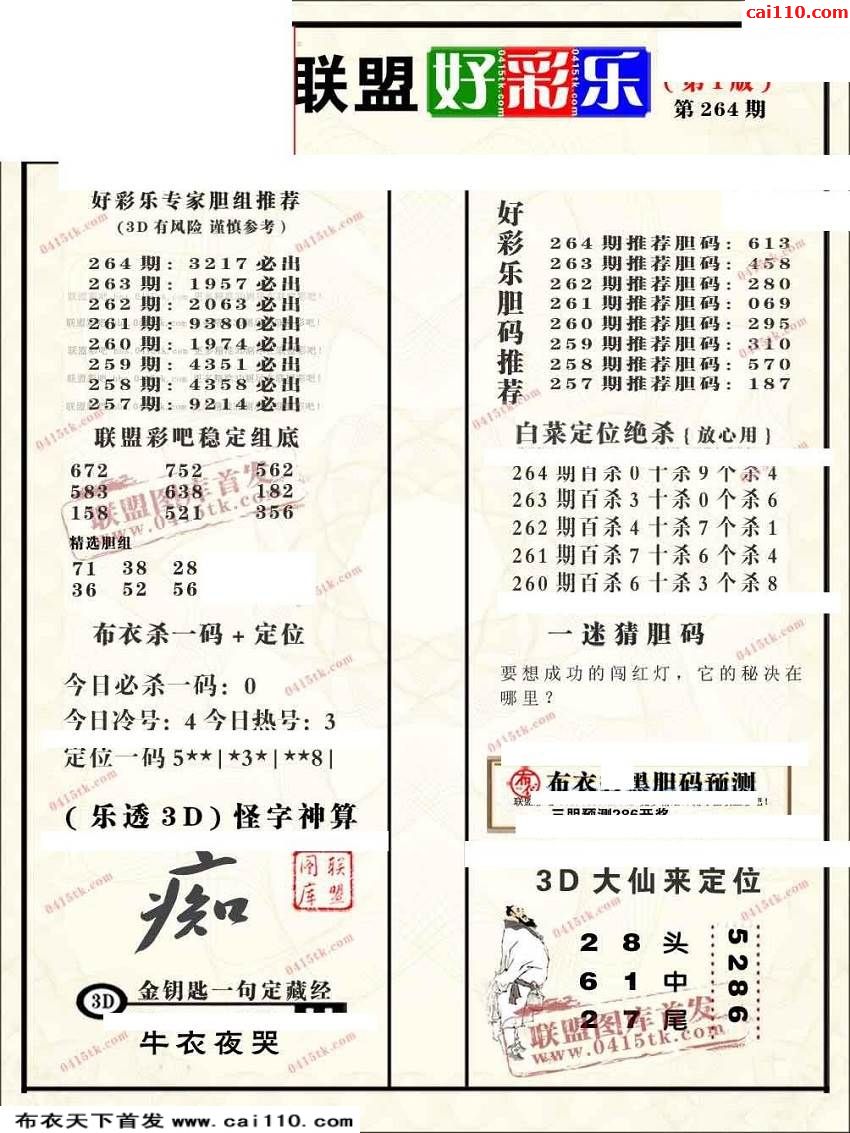 cai110.com
联盟 好彩乐
第264期
好彩乐专家胆组推荐
(3D有风险 谨慎参考)
264期: 3217必出
263期: 1957必出
262期: 2063必出
261期: 9380必出
260期: 1974必出
259期: 4351必出
258期: 4358必出
257期: 9214必出
联盟彩吧稳定组底
672 752 562
583 638 182
158 521 356
精选胆组
71 38 28
36 52 56
布衣杀一码+定位
今日必杀一码: 0
今日冷号: 4 今日热号: 3
定位一码 5**|*3*|**8|
(乐透3D)怪字神算
痴
联盟图库
3D 金钥匙一句定藏经
牛衣夜哭
好彩乐胆码推荐
264期推荐胆码: 613
263期推荐胆码: 458
262期推荐胆码: 280
261期推荐胆码: 069
260期推荐胆码: 295
259期推荐胆码: 310
258期推荐胆码: 570
257期推荐胆码: 187
白菜定位绝杀{放心用}
264期百杀0十杀9个杀4
263期百杀3十杀0个杀6
262期百杀4十杀7个杀1
261期百杀7十杀6个杀4
260期百杀6十杀3个杀8
一迷猜胆码
要想成功的闯红灯,它的秘决在
哪里?
布衣 黑胆码预测
三胆预测286开奖
3D大仙来定位
2 8 头
6 1 中
2 7 尾
5286
联盟图库首发
www.0415tk.com
联盟图库首发
www.0415tk.com
0415tk.com
布衣天下首发 www.cai110.com